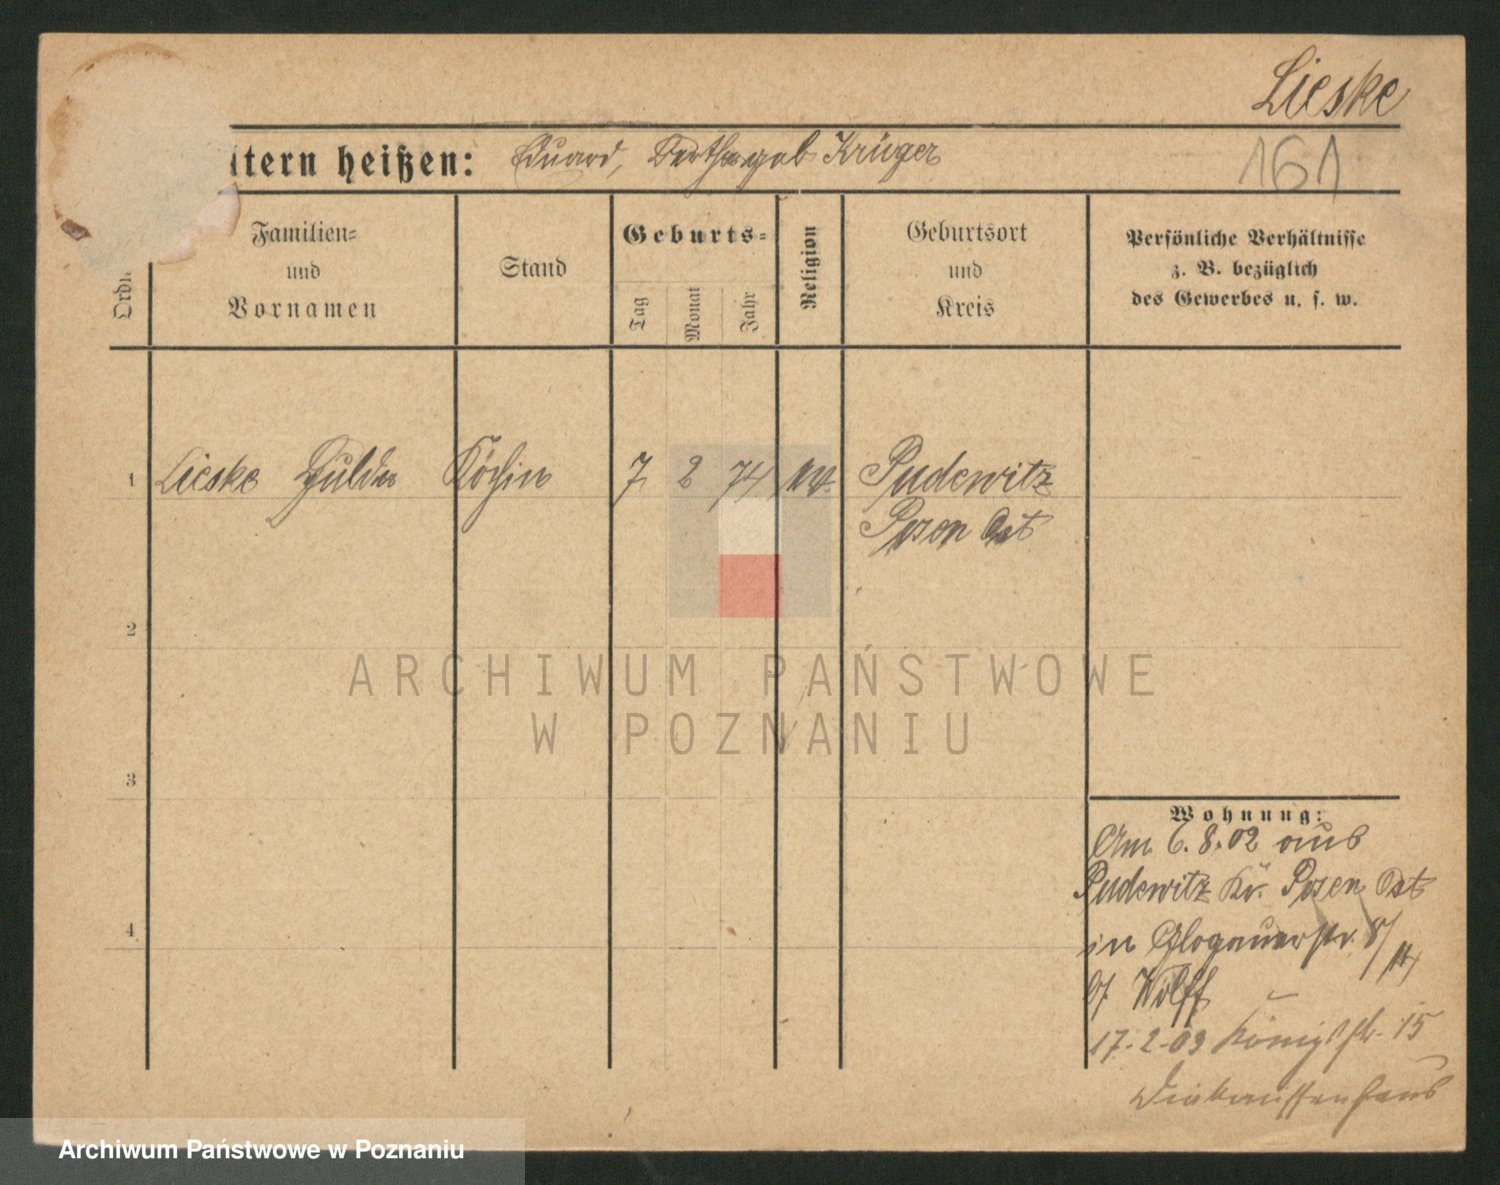 Lieske
ltern heißen: Eduard, Bertha geb Krüger
161
Ordn
Familien-
und
Vornamen
Stand
Geburts-
Tag
Monat
Jahr
Religion
Geburtsort
und
Kreis
Persönliche Verhältnisse
z. B. bezüglich
des Gewerbes u. s. w.
1 Lieske Hulda Köchin 7 2 74 Pudewitz
Posen Ost
2
3
4
Wohnung:
Am 6.8.02 aus
Pudewitz Kr. Posen Ost
in Glogauerstr. 8/
bf Wolff
17.2.03 Königstr. 15
Diakonissenhaus
ARCHIWUM PAŃSTWOWE
W POZNANIU
Archiwum Państwowe w Poznaniu